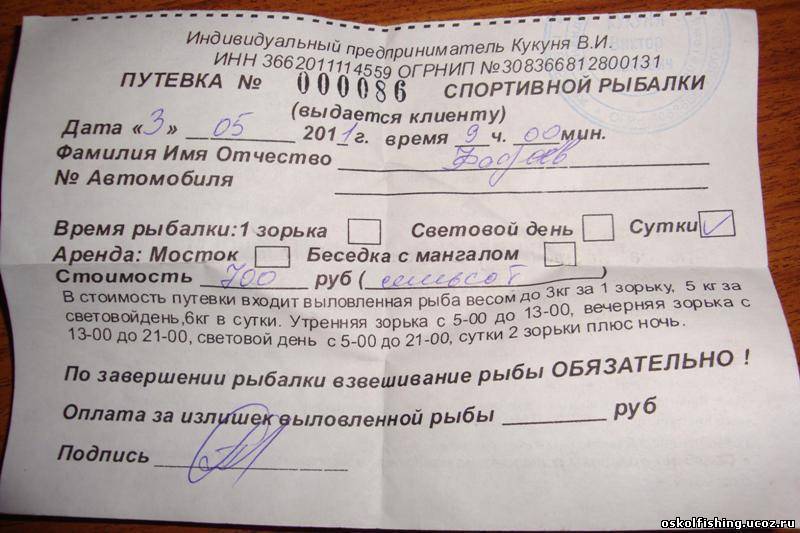 Индивидуальный предприниматель Кукуня В.И.
ИНН 3662011114559 ОГРНИП №308366812800131
ПУТЕВКА № 000086 СПОРТИВНОЙ РЫБАЛКИ
(выдается клиенту)
Дата «3» 05 2011г. время 9 ч. 00 мин.
Фамилия Имя Отчество
№ Автомобиля
Время рыбалки:1 зорька Световой день Сутки
Аренда: Мосток Беседка с мангалом
Стоимость 700 руб (семьсот)
В стоимость путевки входит выловленная рыба весом до 3кг за 1 зорьку, 5 кг за
световойдень,6кг в сутки. Утренняя зорька с 5-00 до 13-00, вечерняя зорька с
13-00 до 21-00, световой день с 5-00 до 21-00, сутки 2 зорьки плюс ночь.
По завершении рыбалки взвешивание рыбы ОБЯЗАТЕЛЬНО !
Оплата за излишек выловленной рыбы руб
Подпись
oskolfishing.ucoz.ru